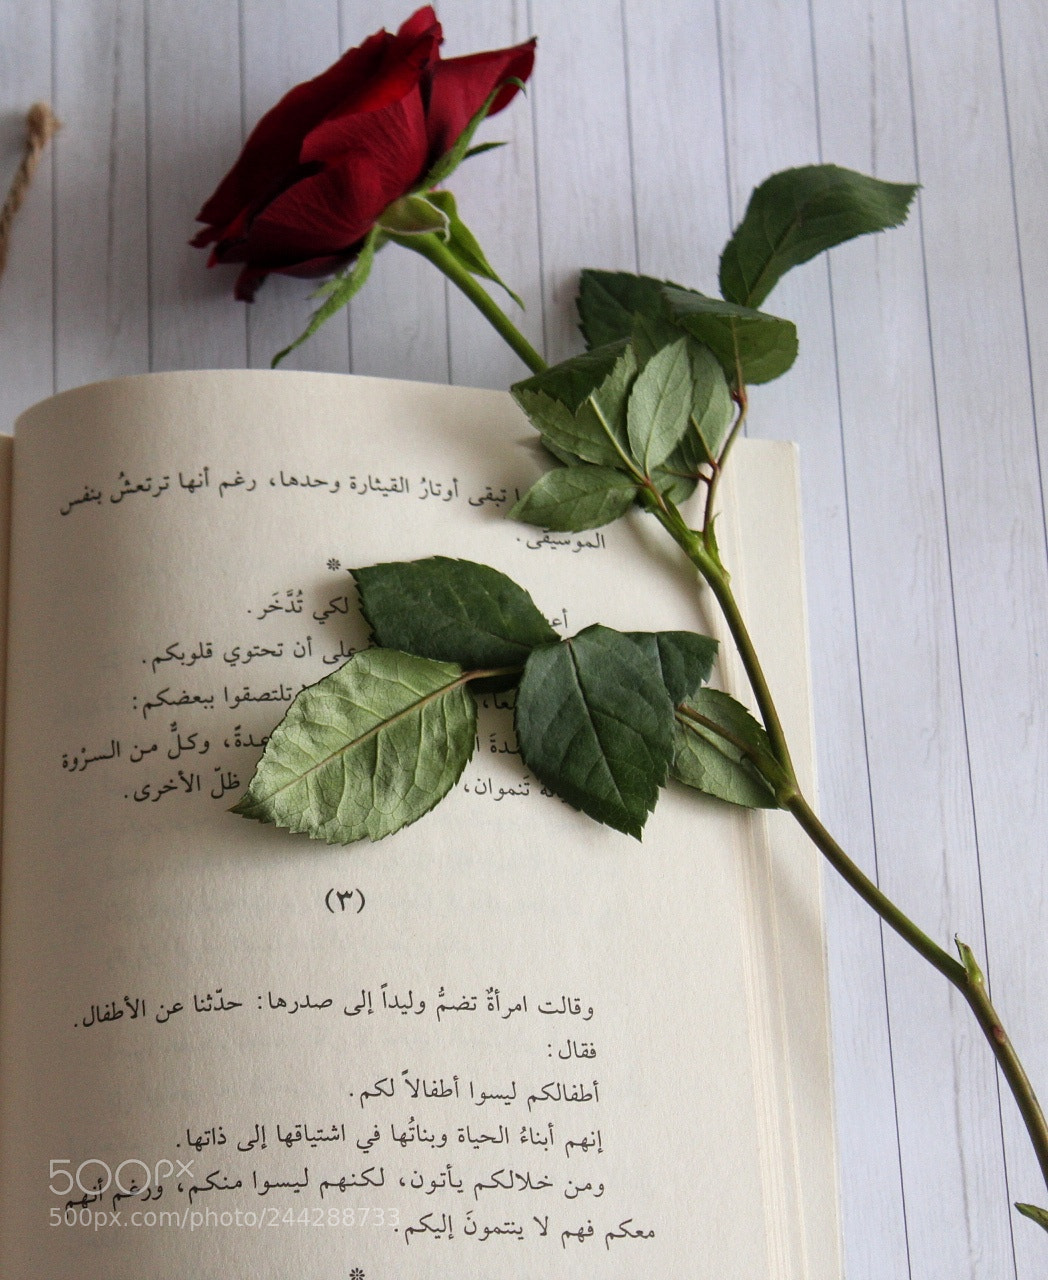 تبقى أوتارُ القيثارة وحدها، رغم أنها ترتعشُ بنفس
الموسيقى.
❊
لكي تُدَّخَر.
على أن تحتوي قلوبكم.
تلتصقوا ببعضكم:
وكلٌّ من السرْوة
تَنموان، ظلّ الأخرى.
(٣)
وقالت امرأةٌ تضمُّ وليداً إلى صدرها: حدّثنا عن الأطفال.
فقال:
أطفالكم ليسوا أطفالاً لكم.
إنهم أبناءُ الحياة وبناتُها في اشتياقها إلى ذاتها.
ومن خلالكم يأتون، لكنهم ليسوا منكم، ورغم أنهم
معكم فهم لا ينتمونَ إليكم.
❊
500px
500px.com/photo/244288733